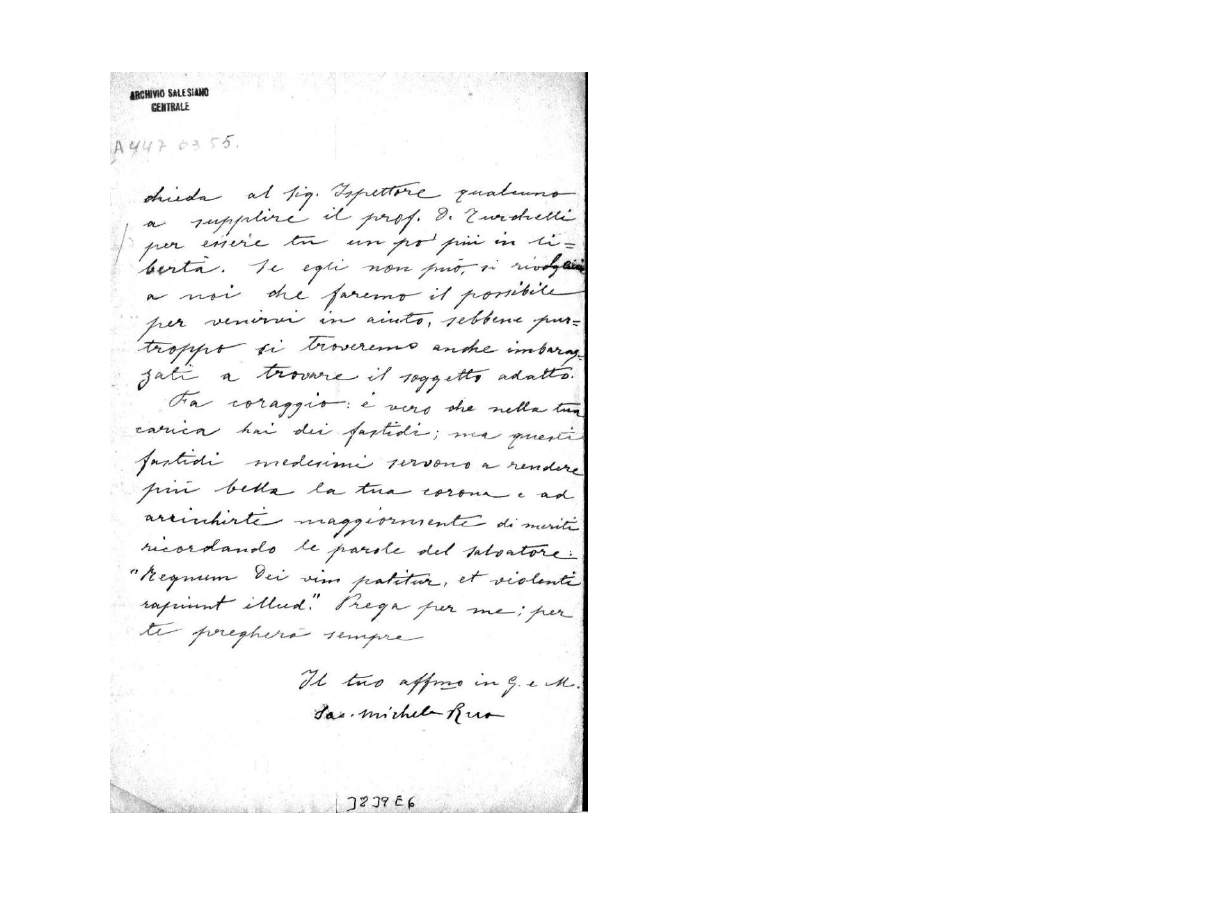 ARCHIVIO SALESIANO
CENTRALE
A447 0355.
chieda al Sig. Ispettore qualcuno
a supplire il prof. D. Zurchelli
per essere tu un po' più in li=
bertà. Se egli non può, si
a noi che faremo il possibile
per venirvi in aiuto, sebbene pur=
troppo ci troveremo anche imbaraz=
zati a trovare il soggetto adatto.
Fa coraggio: è vero che nella tua
carica hai dei fastidi; ma questi
fastidi medesimi servono a rendere
più bella la tua corona e ad
arricchirti maggiormente di meriti
ricordando le parole del Salvatore:
"Regnum Dei vim patitur, et violenti
rapiunt illud." Prega per me; per
te pregherà sempre
Il tuo affmo in G. e M.
Sac. Michele Rua
3239E6